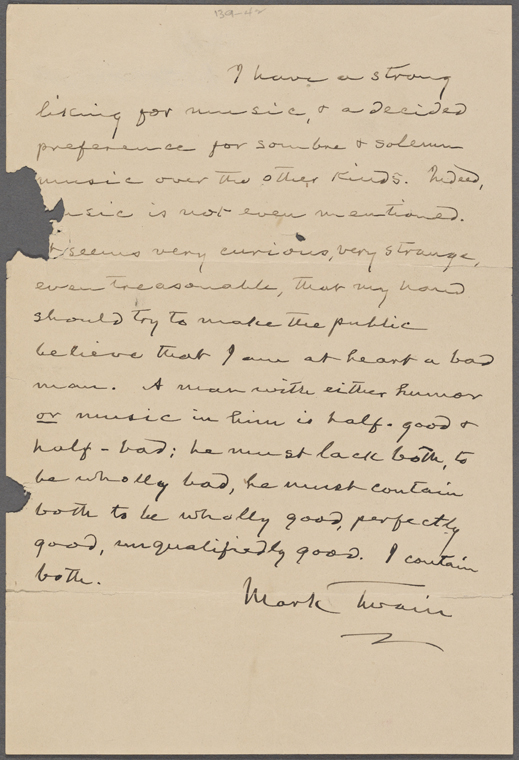 139-42
I have a strong
liking for music, & a decided
preference for sombre & solemn
music over the other kinds. Indeed,
music is not even mentioned.
It seems very curious, very strange,
even treasonable, that my hand
should try to make the public
believe that I am at heart a bad
man. A man with either humor
or music in him is half-good &
half-bad; he must lack both, to
be wholly bad, he must contain
both to be wholly good, perfectly
good, unqualifiedly good. I contain
both.
Mark Twain